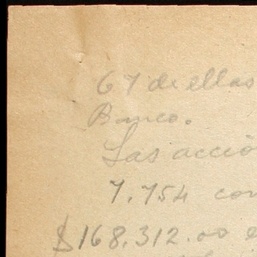 67 de ellas
Banco.
Las acció
7.754 con
$168.312.00 e